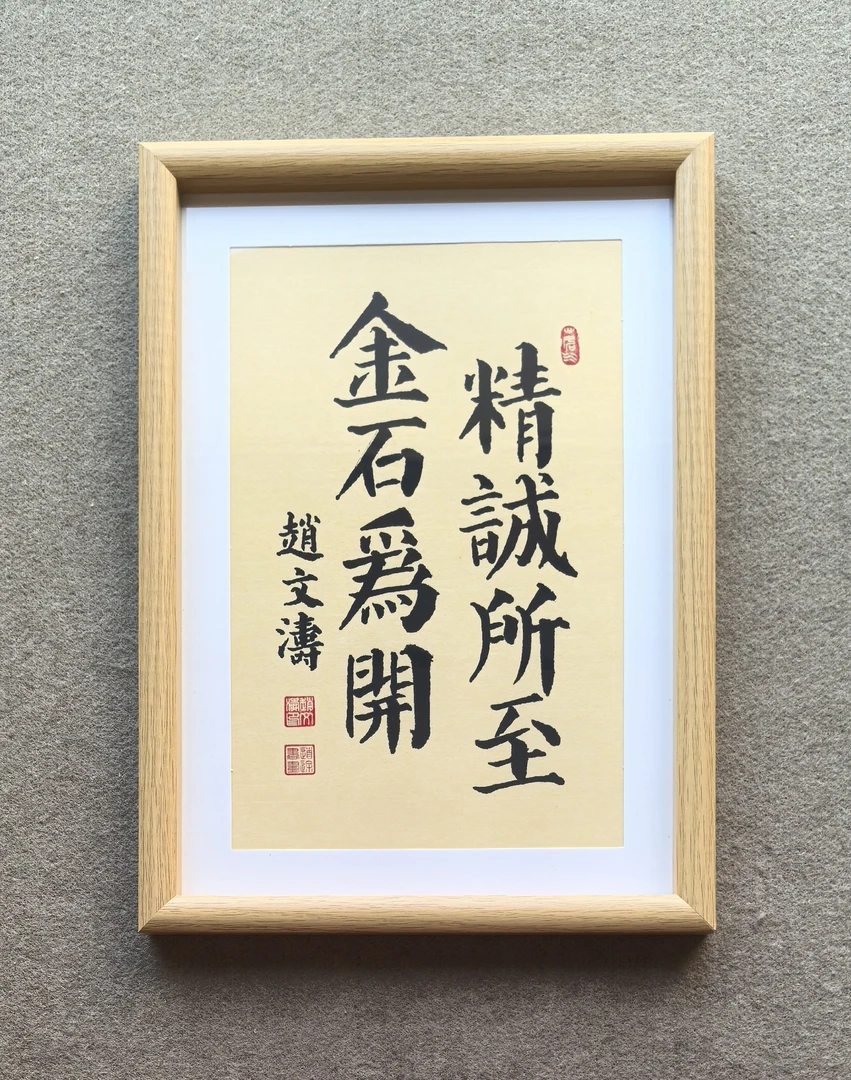 精誠所至
金石為開
趙文濤